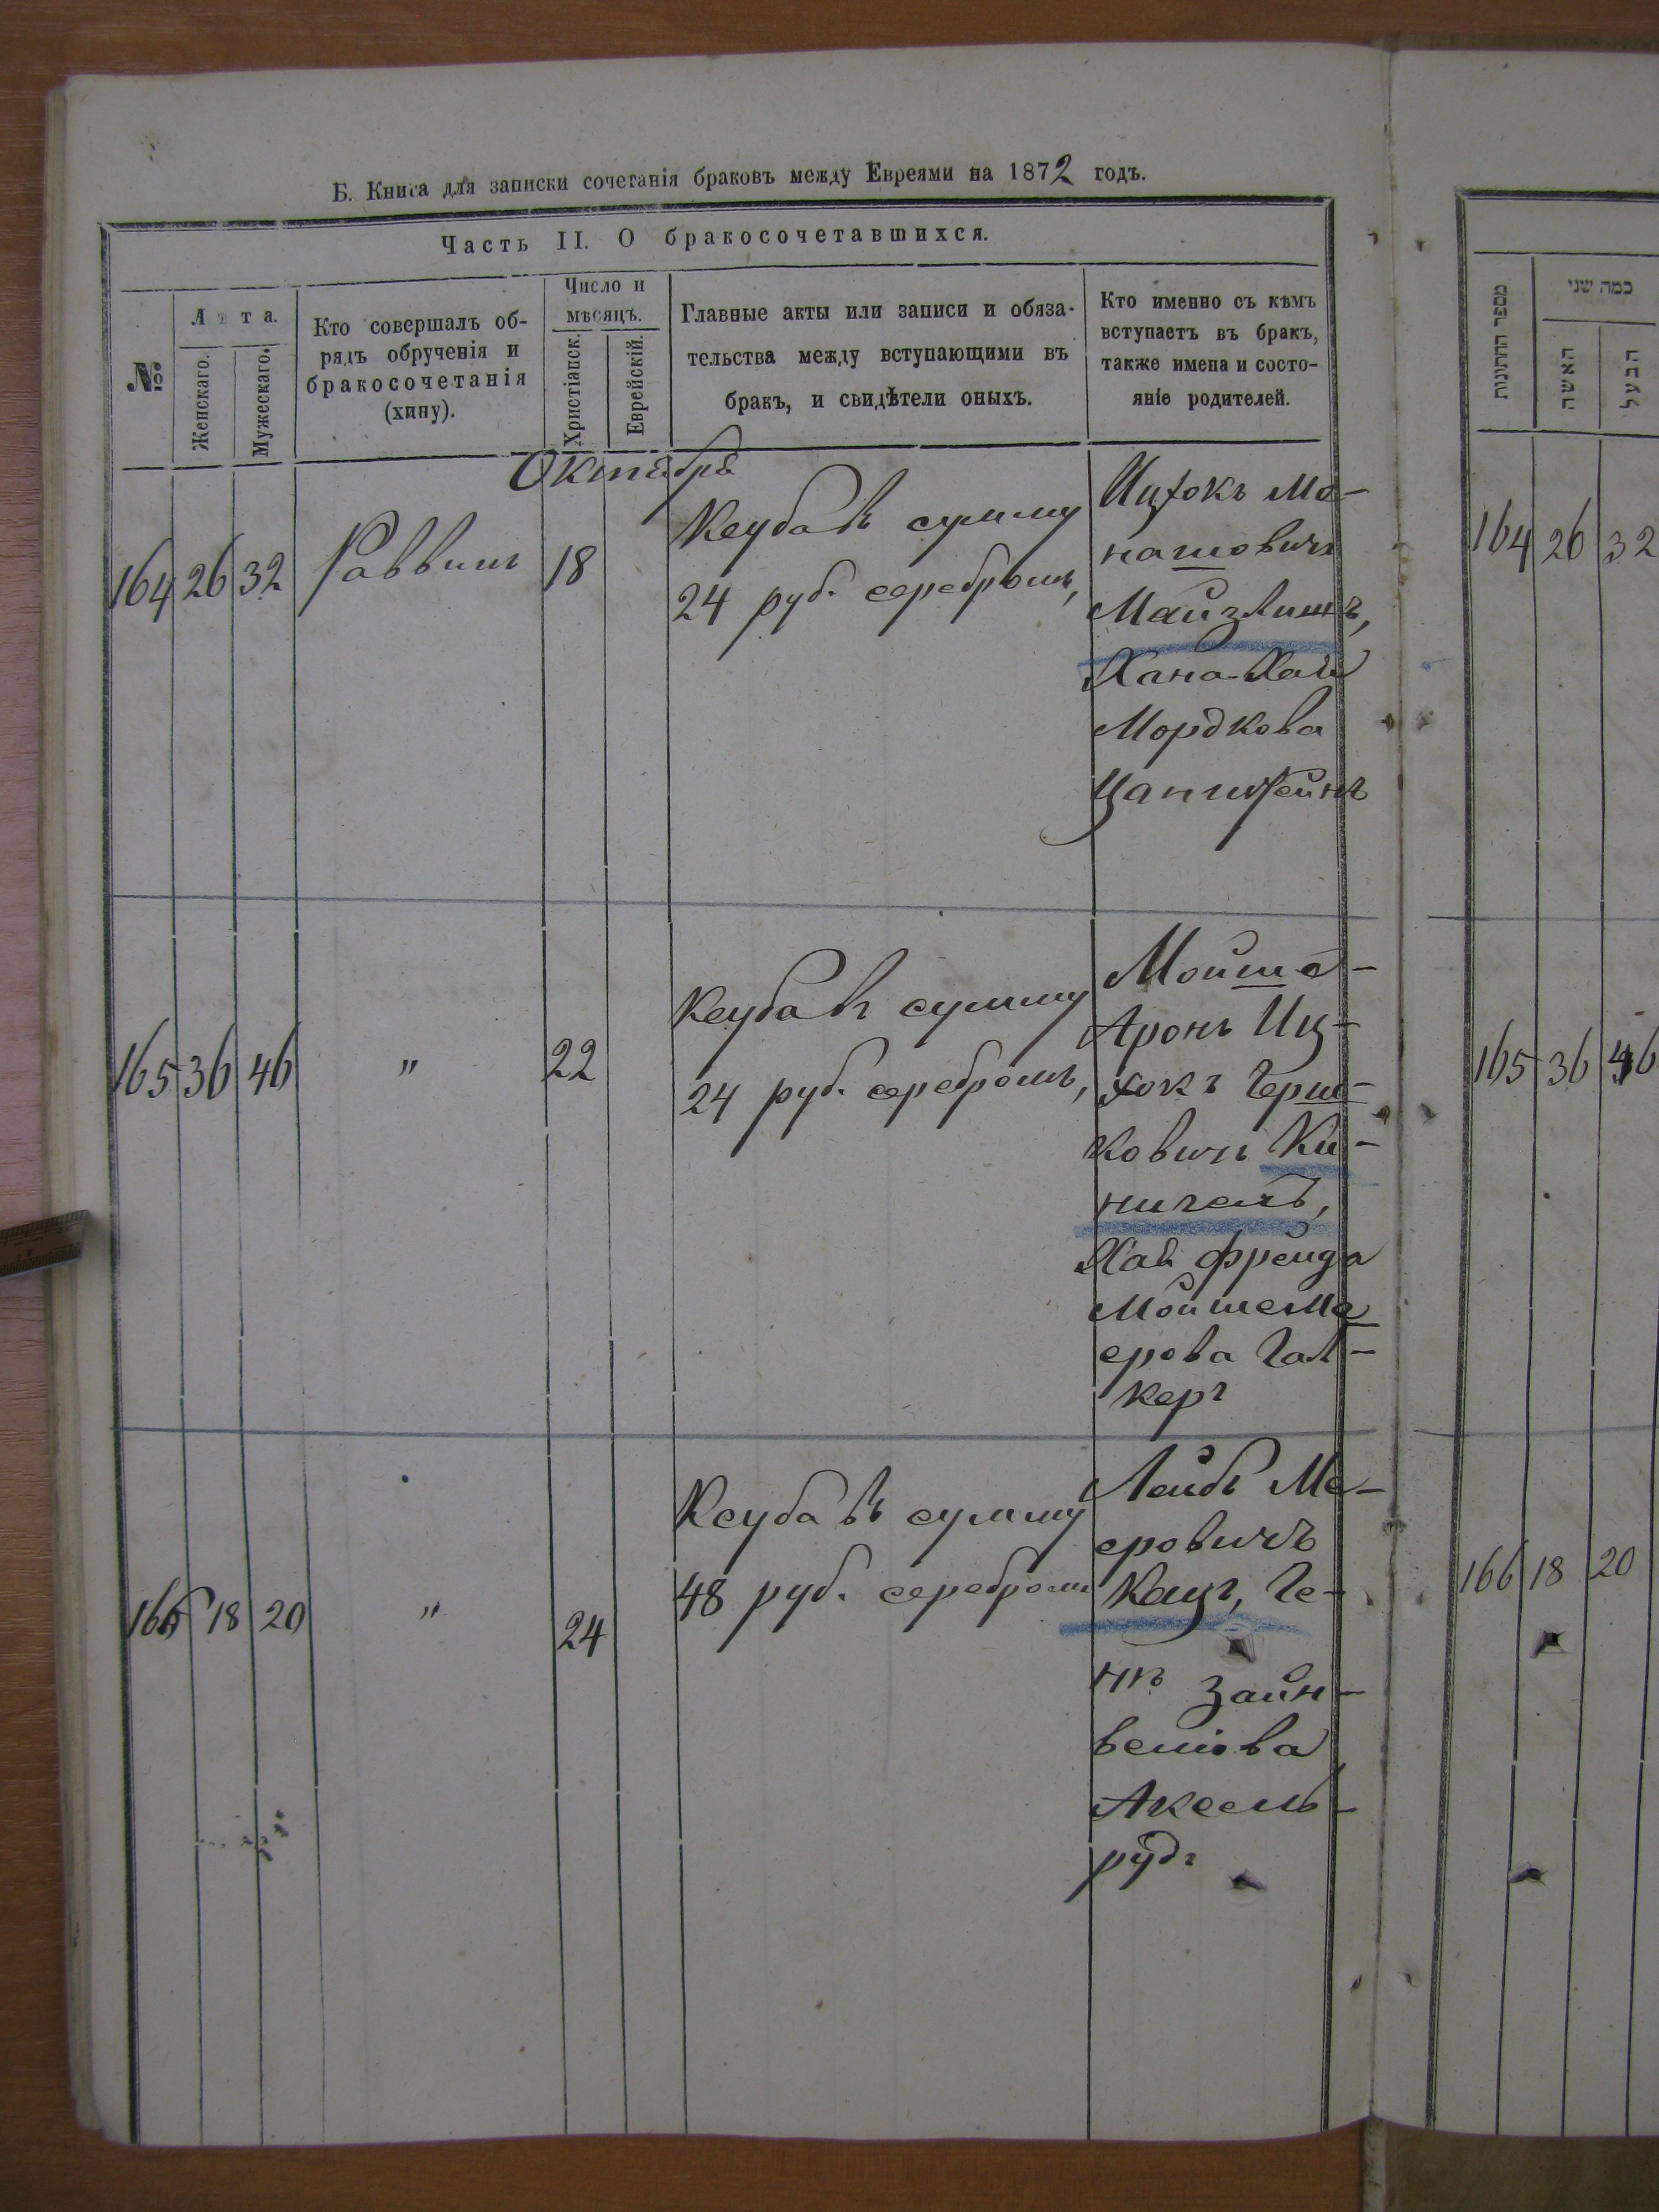 Б. Книга для записки сочетанія браковъ между Евреями на 1872 годъ.
Часть II. О бракосочетавшихся.
№
Лѣта.
Женскаго.
Мужескаго.
Кто совершалъ об-
рядъ обрученія и
бракосочетанія
(хипу).
Число и
мѣсяцъ.
Христіанск.
Еврейскій.
Главные акты или записи и обяза-
тельства между вступающими въ
бракъ, и свидѣтели оныхъ.
Кто именно съ кѣмъ
вступаетъ въ бракъ,
также имена и состо-
яніе родителей.
Октября
164 26 32 Раввинъ 18
Кеуба въ сумму
24 руб. серебромъ,
Ицхокъ Мо-
нашовичъ
Майзлишъ,
Хана-Хая
Мордкова
Цапштейнъ
165 36 46 " 22
Кеуба въ сумму
24 руб. серебромъ,
Мойше-
Аронъ Иц-
хокъ Герш-
ковичъ Ки-
Хая Фрейда
Мойше Ме
ерова Гал-
керъ
166 18 20 " 24
Кеуба въ сумму
48 руб. серебромъ
Лейбъ Ме-
еровичъ
Кацъ, Ге-
Зайн-
велiова
Аксель-
рудъ
מספר החתונות
כמה שני
האשה
הבעל
164 26 32
165 36 46
166 18 20